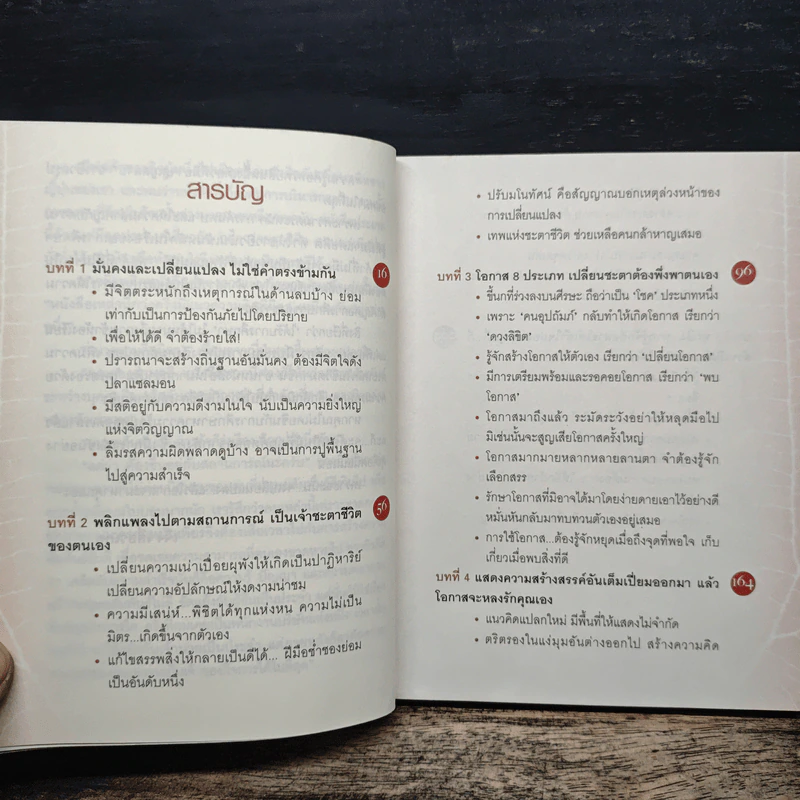 สารบัญ
บทที่ 1 มั่นคงและเปลี่ยนแปลง ไม่ใช่คำตรงข้ามกัน 16
• มีจิตตระหนักถึงเหตุการณ์ในด้านลบบ้าง ย่อม
เท่ากับเป็นการป้องกันภัยไปโดยปริยาย
• เพื่อให้ได้ดี จำต้องร้ายใส่!
• ปรารถนาจะสร้างถิ่นฐานอันมั่นคง ต้องมีจิตใจดัง
ปลาแซลมอน
• มีสติอยู่กับความดีงามในใจ นับเป็นความยิ่งใหญ่
แห่งจิตวิญญาณ
• ลิ้มรสความผิดพลาดดูบ้าง อาจเป็นการปูพื้นฐาน
ไปสู่ความสำเร็จ
บทที่ 2 พลิกแพลงไปตามสถานการณ์ เป็นเจ้าชะตาชีวิต 56
ของตนเอง
• เปลี่ยนความเน่าเปื่อยผุพังให้เกิดเป็นปาฏิหาริย์
เปลี่ยนความอัปลักษณ์ให้งดงามน่าชม
• ความมีเสน่ห์...พิชิตได้ทุกแห่งหน ความไม่เป็น
มิตร...เกิดขึ้นจากตัวเอง
• แก้ไขสรรพสิ่งให้กลายเป็นดีได้... ฝีมือช่ำชองย่อม
เป็นอันดับหนึ่ง
• ปรับมโนทัศน์ คือสัญญาณบอกเหตุล่วงหน้าของ
การเปลี่ยนแปลง
• เทพแห่งชะตาชีวิต ช่วยเหลือคนกล้าหาญเสมอ
บทที่ 3 โอกาส 8 ประเภท เปลี่ยนชะตาต้องพึ่งพาตนเอง 96
• ขี้นกที่ร่วงลงบนศีรษะ ถือว่าเป็น 'โชค' ประเภทหนึ่ง
• เพราะ 'คนอุปถัมภ์' กลับทำให้เกิดโอกาส เรียกว่า
'ดวงลิขิต'
• รู้จักสร้างโอกาสให้ตัวเอง เรียกว่า 'เปลี่ยนโอกาส'
• มีการเตรียมพร้อมและรอคอยโอกาส เรียกว่า 'พบ
โอกาส'
• โอกาสมาถึงแล้ว ระมัดระวังอย่าให้หลุดมือไป
มิเช่นนั้นจะสูญเสียโอกาสครั้งใหญ่
• โอกาสมากมายหลากหลายลานตา จำต้องรู้จัก
เลือกสรร
• รักษาโอกาสที่มิอาจได้มาโดยง่ายดายเอาไว้อย่างดี
หมั่นหันกลับมาทบทวนตัวเองอยู่เสมอ
• การใช้โอกาส...ต้องรู้จักหยุดเมื่อถึงจุดที่พอใจ เก็บ
เกี่ยวเมื่อพบสิ่งที่ดี
บทที่ 4 แสดงความสร้างสรรค์อันเต็มเปี่ยมออกมา แล้ว 164
โอกาสจะหลงรักคุณเอง
• แนวคิดแปลกใหม่ มีพื้นที่ให้แสดงไม่จำกัด
• ตริตรองในแง่มุมอันต่างออกไป สร้างความคิด